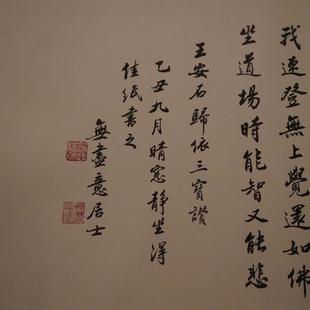 我速登無上覺還如佛
坐道場時能智又能悲
王安石歸依三寶讚
乙丑九月晴窓静坐得
佳紙書之
無盡意居士